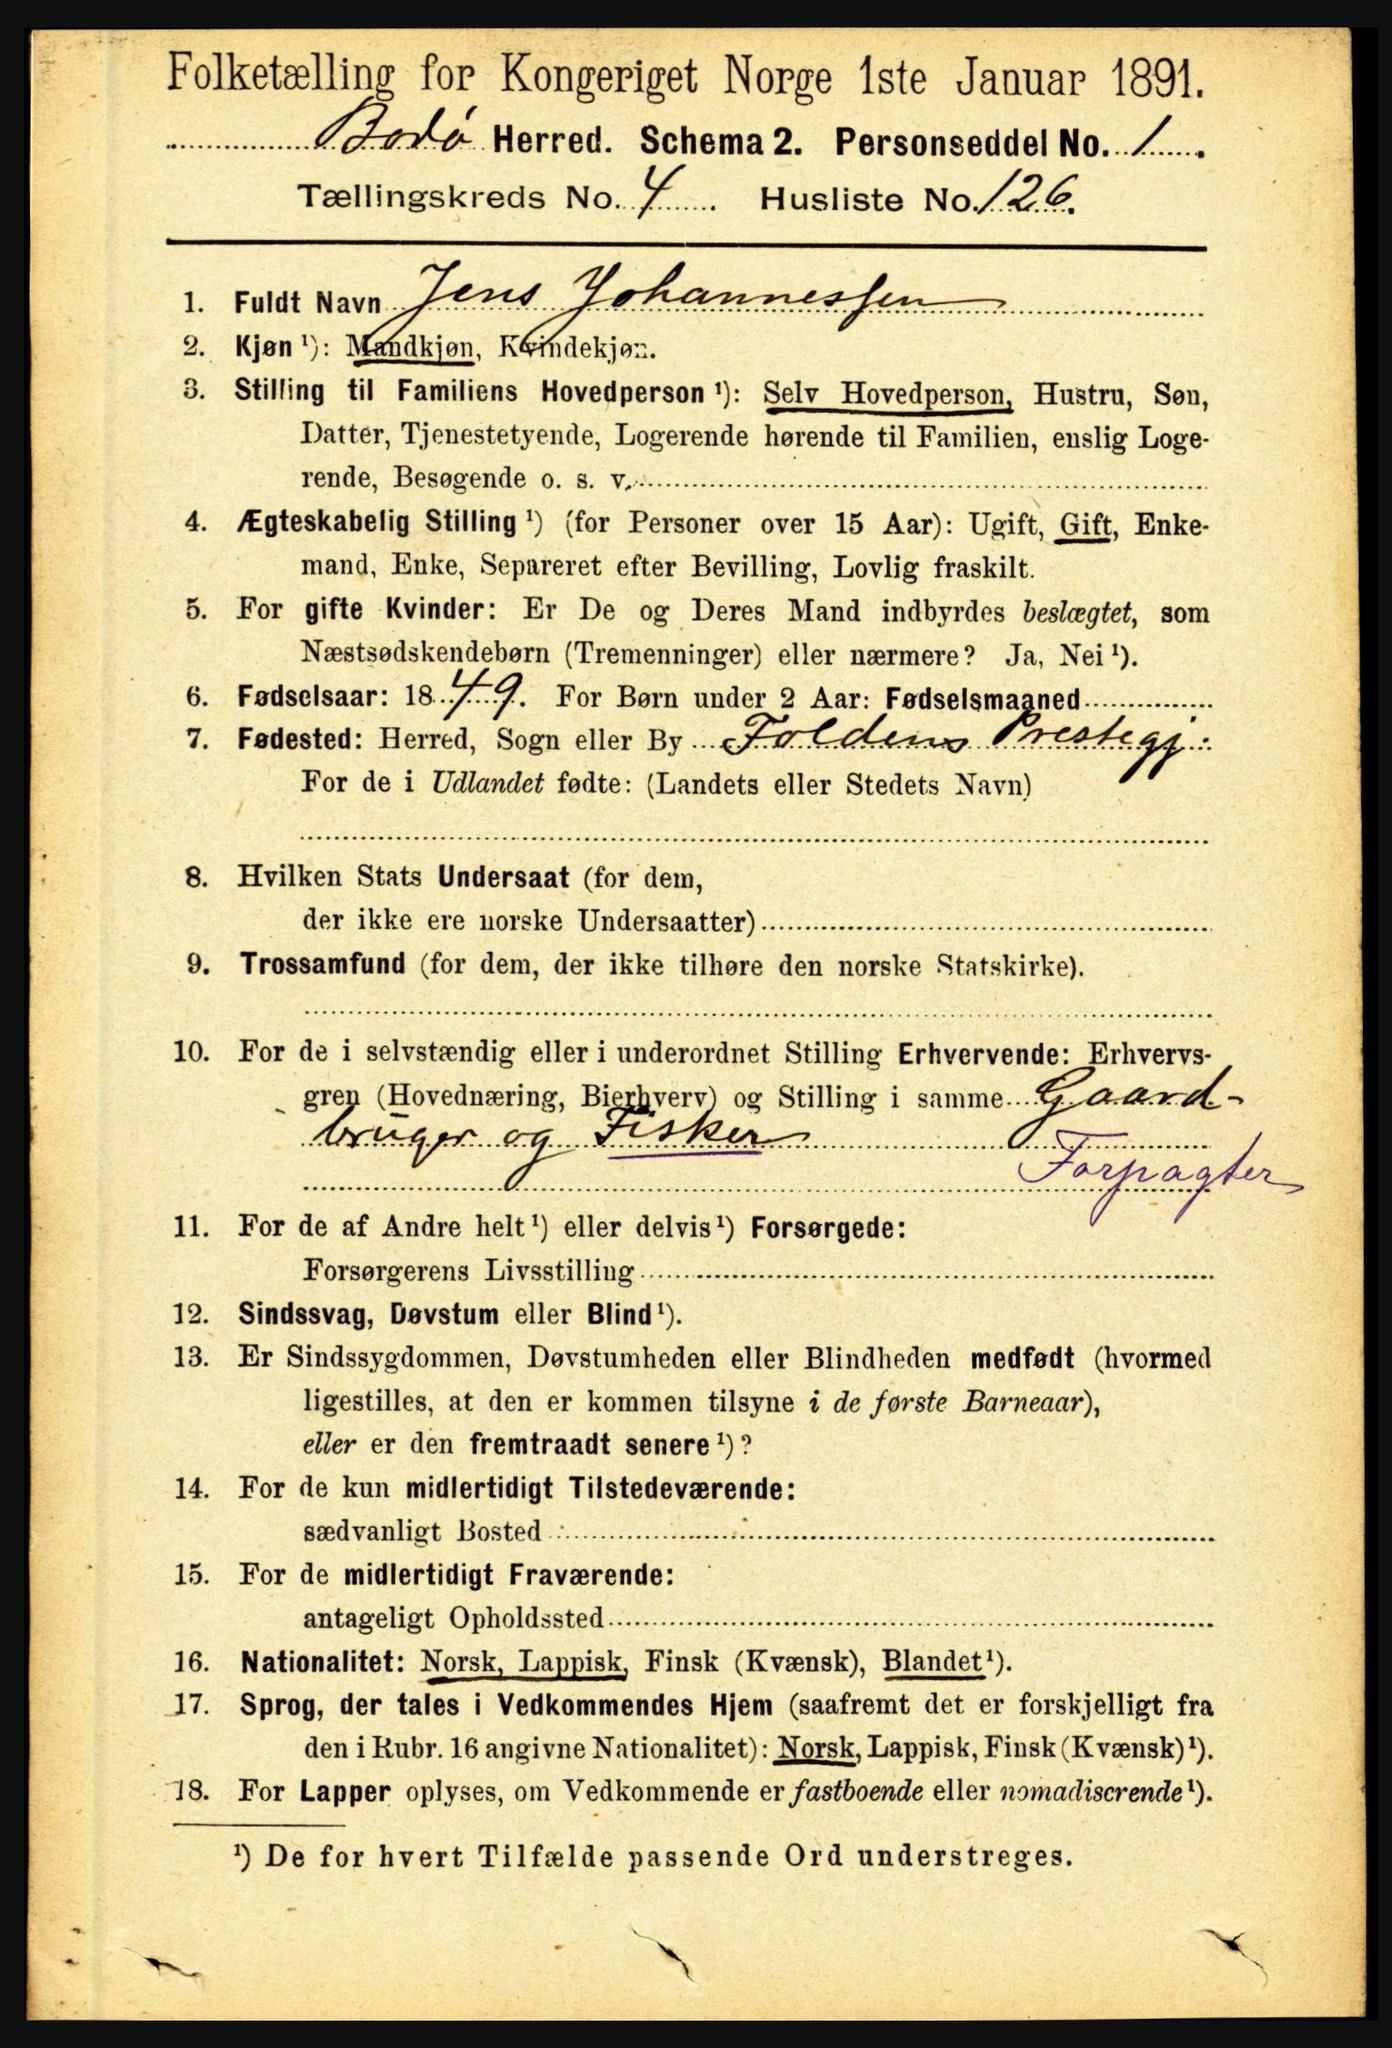 Folketælling for Kongeriget Norge 1ste Januar 1891.
Bodø Herred. Schema 2. Personseddel No. 1.
Tællingskreds No. 4. Husliste No. 126.
1. Fuldt Navn Jens Johannessen
2. Kjøn ¹): Mandkjøn, Kvindekjøn.
3. Stilling til Familiens Hovedperson ¹): Selv Hovedperson, Hustru, Søn,
Datter, Tjenestetyende, Logerende hørende til Familien, enslig Loge-
rende, Besøgende o. s. v.
4. Ægteskabelig Stilling ¹) (for Personer over 15 Aar): Ugift, Gift, Enke-
mand, Enke, Separeret efter Bevilling, Lovlig fraskilt.
5. For gifte Kvinder: Er De og Deres Mand indbyrdes beslægtet, som
Næstsødskendebørn (Tremenninger) eller nærmere? Ja, Nei ¹).
6. Fødselsaar: 1849. For Børn under 2 Aar: Fødselsmaaned
7. Fødested: Herred, Sogn eller By Foldens Prestegj.
For de i Udlandet fødte: (Landets eller Stedets Navn)
8. Hvilken Stats Undersaat (for dem,
der ikke ere norske Undersaatter)
9. Trossamfund (for dem, der ikke tilhøre den norske Statskirke).
10. For de i selvstændig eller i underordnet Stilling Erhvervende: Erhvervs-
gren (Hovednæring, Bierhverv) og Stilling i samme Gaard-
bruger og Fisker
Forpagter
11. For de af Andre helt ¹) eller delvis ¹) Forsørgede:
Forsørgerens Livsstilling
12. Sindssvag, Døvstum eller Blind ¹).
13. Er Sindssygdommen, Døvstumheden eller Blindheden medfødt (hvormed
ligestilles, at den er kommen tilsyne i de første Barneaar),
eller er den fremtraadt senere ¹)?
14. For de kun midlertidigt Tilstedeværende:
sædvanligt Bosted
15. For de midlertidigt Fraværende:
antageligt Opholdssted
16. Nationalitet: Norsk, Lappisk, Finsk (Kvænsk), Blandet ¹).
17. Sprog, der tales i Vedkommendes Hjem (saafremt det er forskjelligt fra
den i Rubr. 16 angivne Nationalitet): Norsk, Lappisk, Finsk (Kvænsk) ¹).
18. For Lapper oplyses, om Vedkommende er fastboende eller nomadiserende ¹).
¹) De for hvert Tilfælde passende Ord understreges.